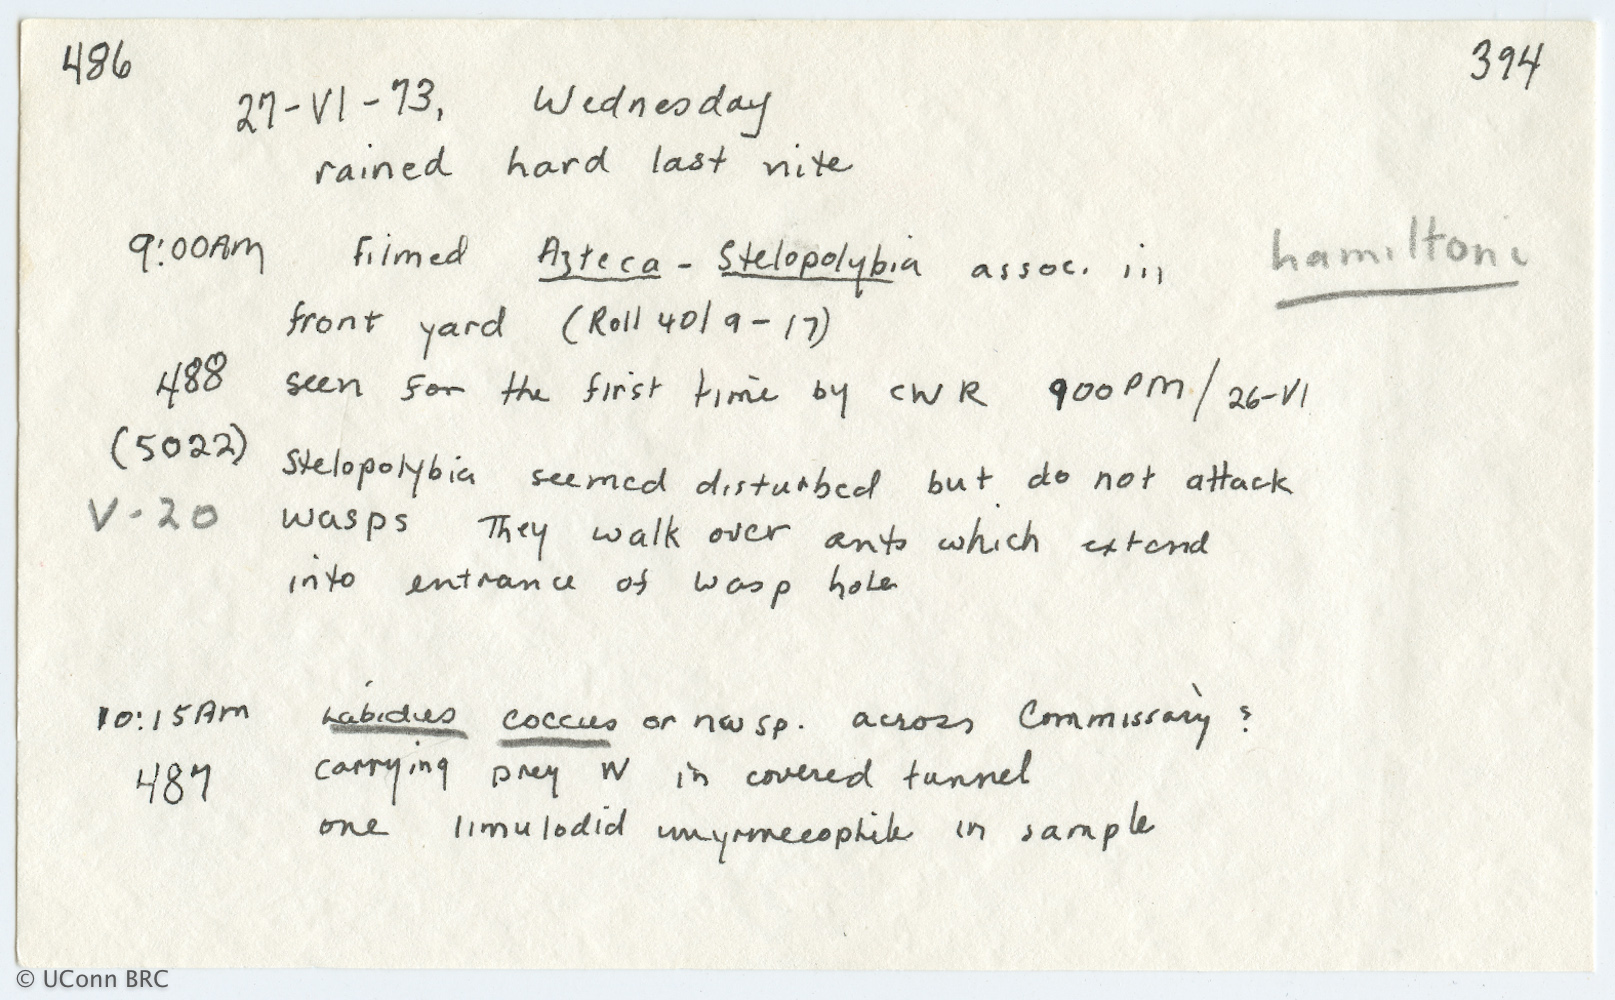 486 394
27-VI-73, Wednesday
rained hard last nite
9:00AM Filmed Azteca - Stelopolybia assoc. in hamiltoni
front yard (Roll 40/9-17)
488 seen for the first time by CWR 900PM/26-VI
(5022) Stelopolybia seemed disturbed but do not attack
V-20 wasps They walk over ants which extend
into entrance of wasp hole
10:15AM Labidus coccus or new sp. across Commissary
487 carrying prey W in covered tunnel
one limulodid myrmecophile in sample
© UConn BRC